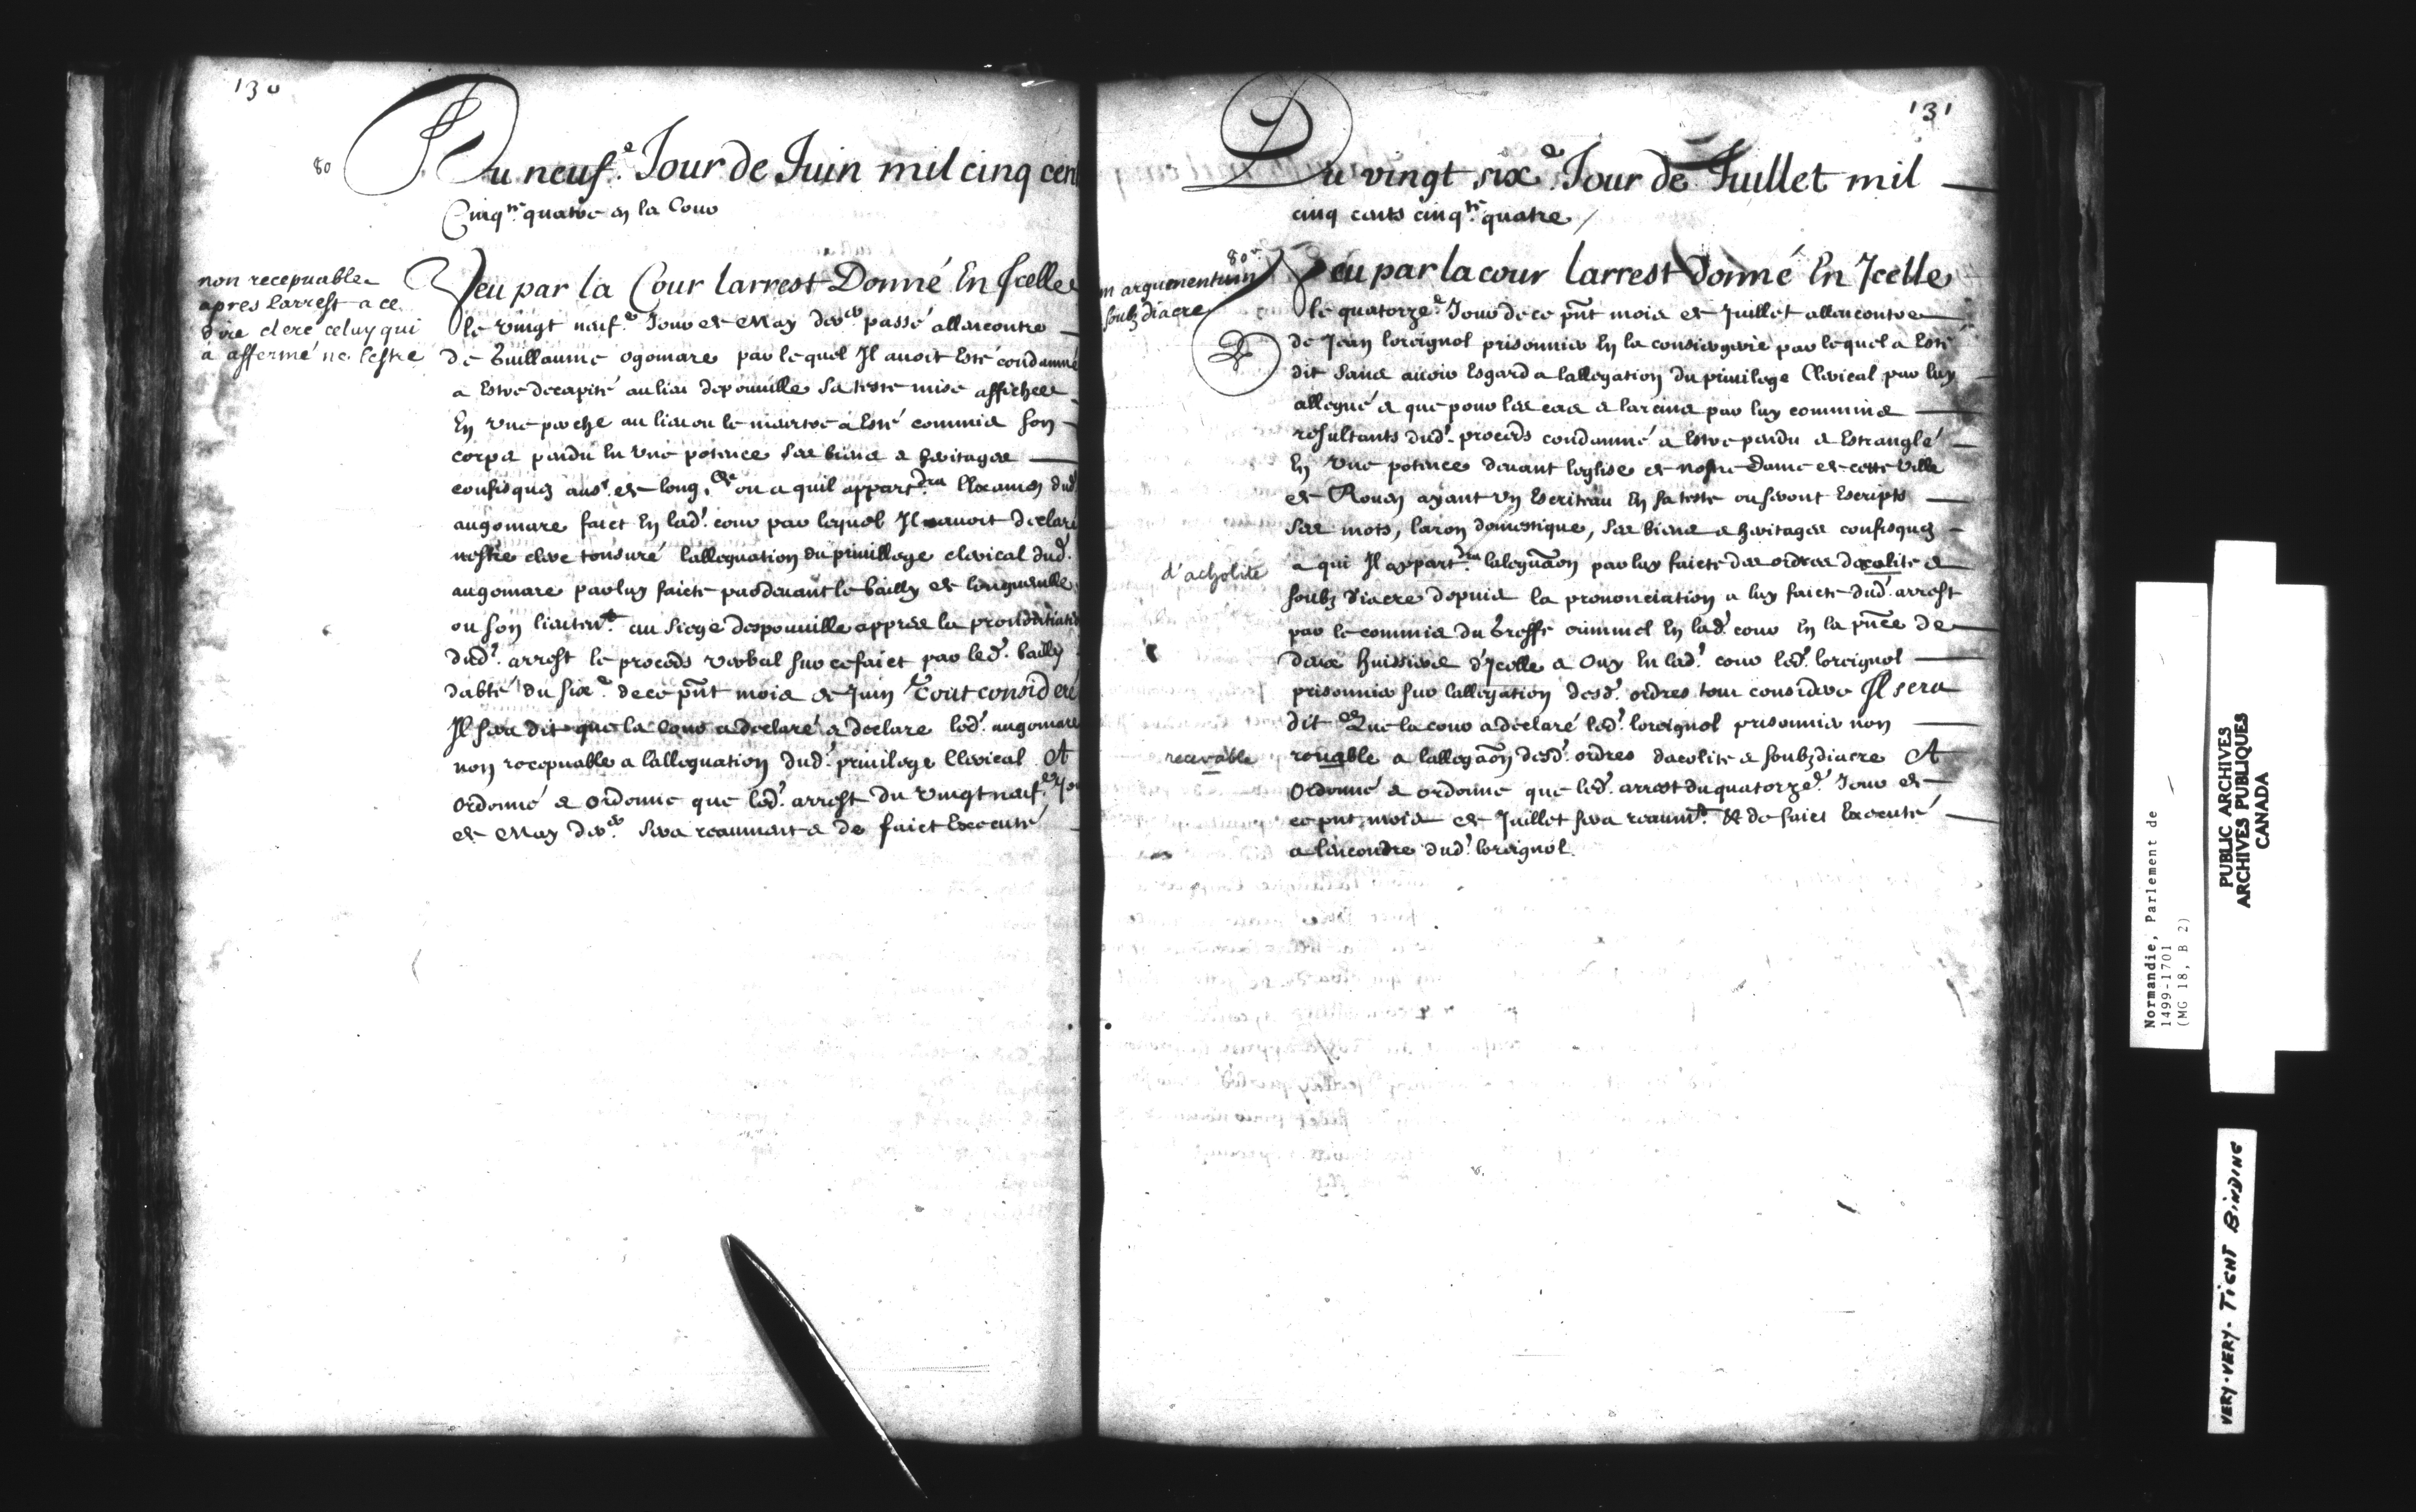 130
80
Du neuf.e Jour de Juin mil cinq cent
Cinq.te quatre en la Cour
non recepuable
apres larrest a ce
dire clerc celuy qui
a affermé ne lestre
Veu par la Cour larrest Donné En Icelle
le vingt neuf.e Jour de May der.er passé allencontre
de Guillaume ogomare par lequel Il auoit Esté condamné
a Estre decapité au lieu depouuille sa teste mise affichee
En vne perche au lieu ou le meurtre a Esté commis son
corps pendu En vne potence ses biens & heritages
confisquez aus.r de long. ou a quil appart.dra Lexamen dud.
augomare faict En lad. cour par lequel Il auoit declaré
nestre clerc tonsuré lalleguation du priuillege clerical dud.
augomare par luy faicte pardeuant le bailly de longueuille
ou son lieuten.t au siege despouuille appres la prononciation
dud. arrest le proceds verbal sur ce faict par led. bailly
dabté du six.e de ce pnt mois de Juin Tout consideré
Il sera dit que la cour a declaré & declare led. augomare
non recepuable a lalleguation dud. priuilege Clerical Et
ordonné & ordonne que led. arrest du vingt neuf.e Jour
de May der.er sera reaument & de faict Executé
131
Du vingt six.e Jour de Juillet mil
cinq cents cinq.te quatre /
80
argumentum
soubz diacre
Veu par la cour larrest Donné En Icelle
le quatorze.e Jour de ce pnt mois de Juillet allencontre
de Jean loreignol prisonnier En la consiergerie par lequel a Esté
dit sans auoir Esgard a lallegation du priuilege Clerical par luy
allegué & que pour les cas & larcins par luy commins
resultants dud. proceds condamné a Estre pendu & Estranglé
En vne potence deuant leglise de nostre Dame de cette ville
de Rouen ayant vn Escriteau En sa teste ou seront Escripts
ses mots, laron domestique, ses biens & heritages confisquez
a qui Il appart.dra laleguaon par luy faicte des ordres dacolite &
d'acholite
soubz diacre depuis la prononciation a luy faicte dud. arrest
par le commis du Greffe criminel En lad. cour En la pnce de
deux huissiers d'Icelle & Ouy En lad. cour led. loreignol
prisonnier sur lallegation desd. ordres tout consideré Il sera
dit Que la cour a declaré led. loreignol prisonnier non
receuable
rceuable a lallegaon desd. ordres dacolite & soubzdiacre Et
Ordonné & ordonne que led. arrest du quatorze.e Jour de
ce pnt mois de Juillet sera reaum.t & de faict Executé
a lencontre dud. loreignol.
Normandie, Parlement de
1499-1701
(MG 18, B 2)
PUBLIC ARCHIVES
ARCHIVES PUBLIQUES
CANADA
VERY-VERY-TIGHT BINDING